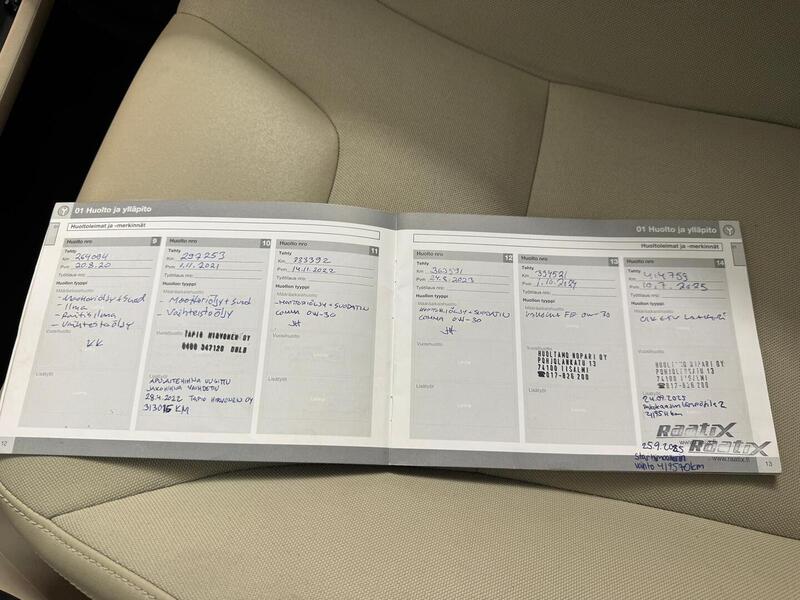 01 Huolto ja ylläpito
Huoltoleimat ja -merkinnät
Huolto nro 9
Tehty
Km 264094
Pvm 20.8.20
Työtilaus nro:
Huollon tyyppi
Määräaikaishuolto:
- Moottoriöljy + suod
- Ilma
- Raitisilma
- Vaihteistoöljy
KK
Vuosihuolto:
Lisätyöt:
Huolto nro 10
Tehty
Km 297253
Pvm 1.11.2021
Työtilaus nro:
Huollon tyyppi
Määräaikaishuolto:
- Moottoriöljy + suod
- Vaihteistoöljy
Vuosihuolto:
TAPIO HIRVONEN OY
0400 347120
Lisätyöt:
APULAITEHIHNA UUSITTU
JAKOHIHNA VAIHDETTU
28.4.2022 TAPIO HIRVONEN OY
313016 KM
Huolto nro 11
Tehty
Km 333392
Pvm 14.11.2022
Työtilaus nro:
Huollon tyyppi
Määräaikaishuolto:
- MOOTTORIÖLJY + SUODATIN
COMMA 0W-30
Vuosihuolto:
Lisätyöt:
12
01 Huolto ja ylläpito
Huoltoleimat ja -merkinnät
Huolto nro 12
Tehty
Km
Pvm 24.8.2023
Työtilaus nro:
Huollon tyyppi
Määräaikaishuolto:
MOOTTORIÖLJY + SUODATIN
COMMA 0W-30
Vuosihuolto:
Lisätyöt:
Huolto nro 13
Tehty
Km
Pvm 1.10.2024
Työtilaus nro:
Huollon tyyppi
Määräaikaishuolto:
0W-30
Vuosihuolto:
HUOLTAMO KOPARI OY
POHJOLANKATU 13
74100 IISALMI
☎017-826 200
Lisätyöt:
Huolto nro 14
Tehty
Km
Pvm 10.7.2025
Työtilaus nro:
Huollon tyyppi
Määräaikaishuolto:
Vuosihuolto:
HUOLTAMO KOPARI OY
POHJOLANKATU 13
74100 IISALMI
☎017-826 200
Lisätyöt:
24.09.2025
RaatiX
25.9.2025
RaatiX
www.raatix.fi
Startti­moottorin
vaihto 419570km
13